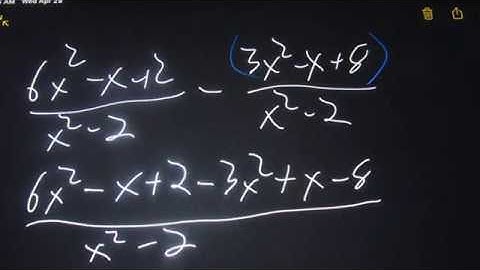 AM Wed Apr 29
6x² - x + 2 / x² - 2 - (3x² - x + 8) / x² - 2
6x² - x + 2 - 3x² + x - 8 / x² - 2